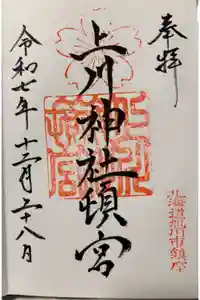 奉拝
上川神社頓宮
令和七年十二月二十八日
北海道旭川市鎮座